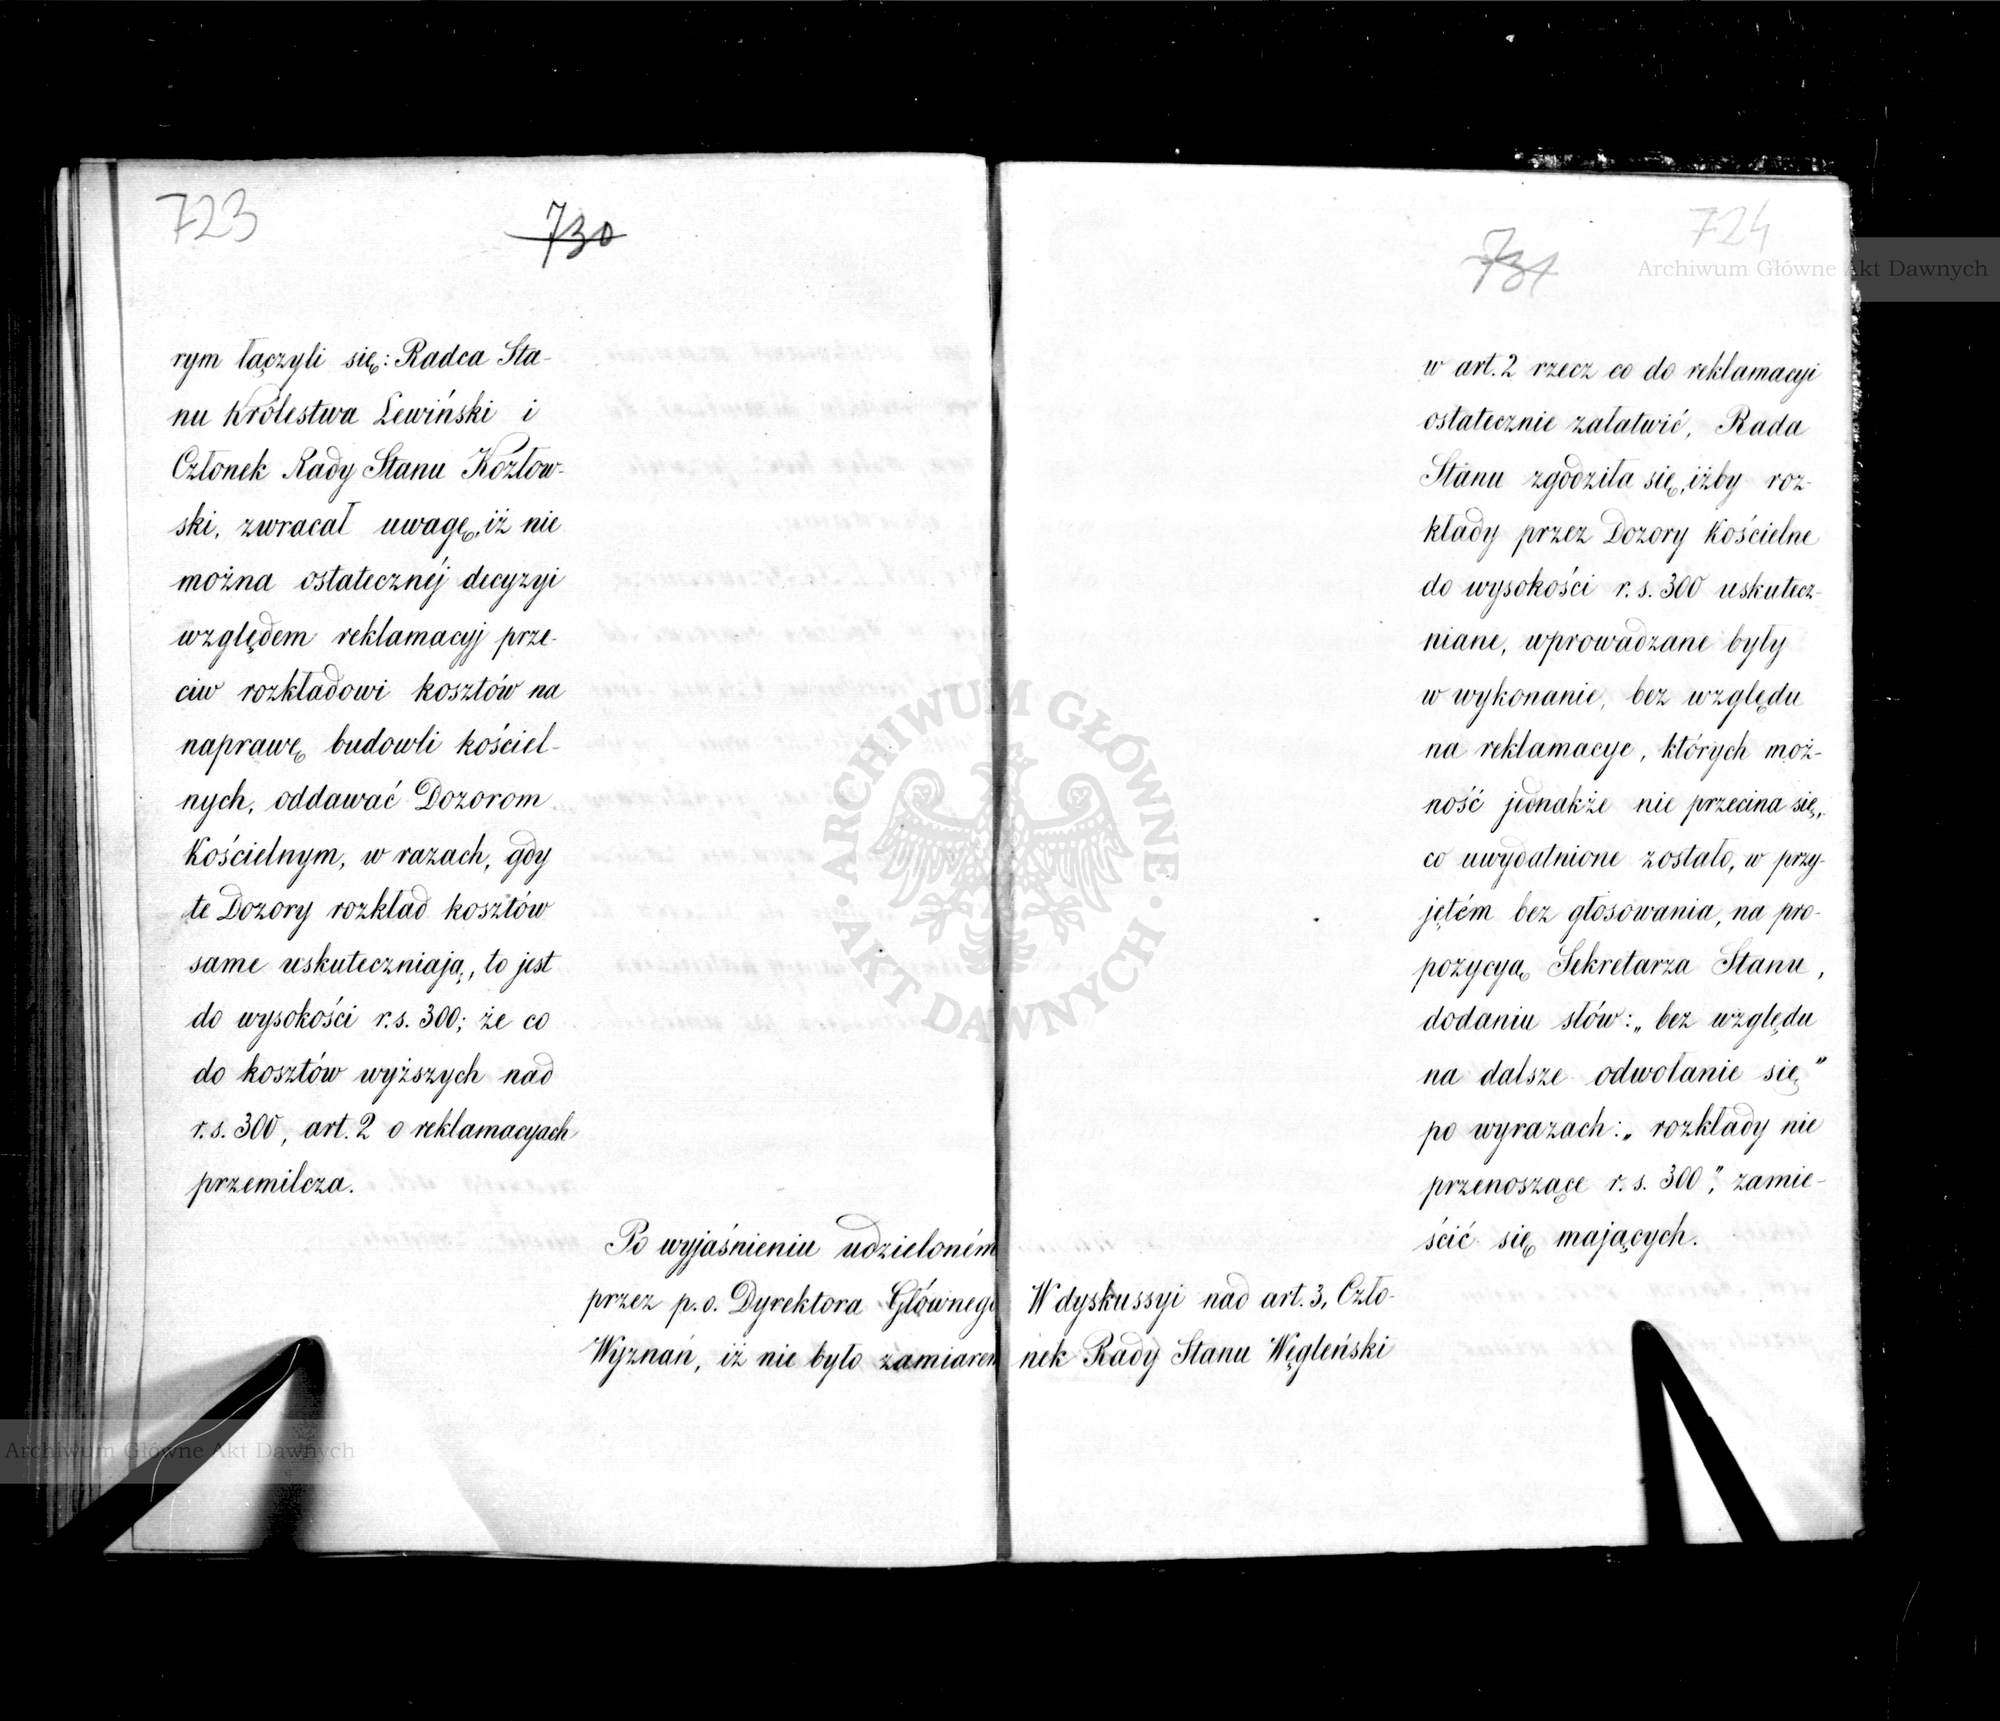 723
730
rym łączyli się: Radca Sta-
nu Królestwa Lewiński i
Członek Rady Stanu Kozłow-
ski, zwracał uwagę, iż nie
można ostatecznéj decyzyi
względem reklamacyj prze-
ciw rozkładowi kosztów na
naprawę budowli kościel-
nych, oddawać Dozorom
Kościelnym, w razach, gdy
te Dozory rozkład kosztów
same uskuteczniają, to jest
do wysokości r.s. 300; że co
do kosztów wyższych nad
r.s. 300, art. 2 o reklamacyach
przemilcza.
Po wyjaśnieniu udzieloném
przez p.o. Dyrektora Głównego
Wyznań, iż nie było zamiarem
724
731
w art. 2 rzecz co do reklamacyi
ostatecznie załatwić, Rada
Stanu zgodziła się, iżby roz-
kłady przez Dozory Kościelne
do wysokości r.s. 300 uskutecz-
niane, wprowadzane były
w wykonanie, bez względu
na reklamacye, których moż-
ność jednakże nie przecina się,
co uwydatnione zostało, w przy-
jętém bez głosowania, na pro-
pozycyą Sekretarza Stanu,
dodaniu słów: „bez względu
na dalsze odwołanie się"
po wyrazach: „rozkłady nie
przenoszące r.s. 300", zamie-
ścić się mających.
W dyskussyi nad art. 3, Czło-
nek Rady Stanu Węgleński
Archiwum Główne Akt Dawnych
Archiwum Główne Akt Dawnych
ARCHIWUM GŁÓWNE · AKT DAWNYCH ·